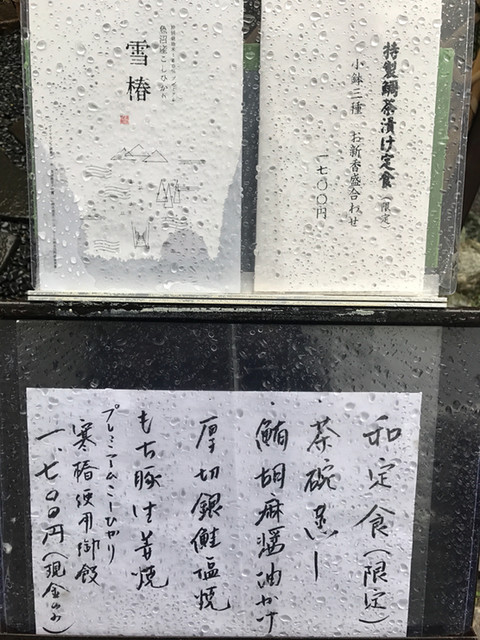 特製鯛茶漬け定食（限定）
小鉢三種　お新香盛合わせ
一七〇〇円
魚沼産こしひかり
雪椿
和定食（限定）
茶碗蒸し
鮪胡麻醤油かけ
厚切銀鮭塩焼
もち豚生姜焼
プレミアムこしひかり
寒椿使用御飯
一、七〇〇円（現金のみ）